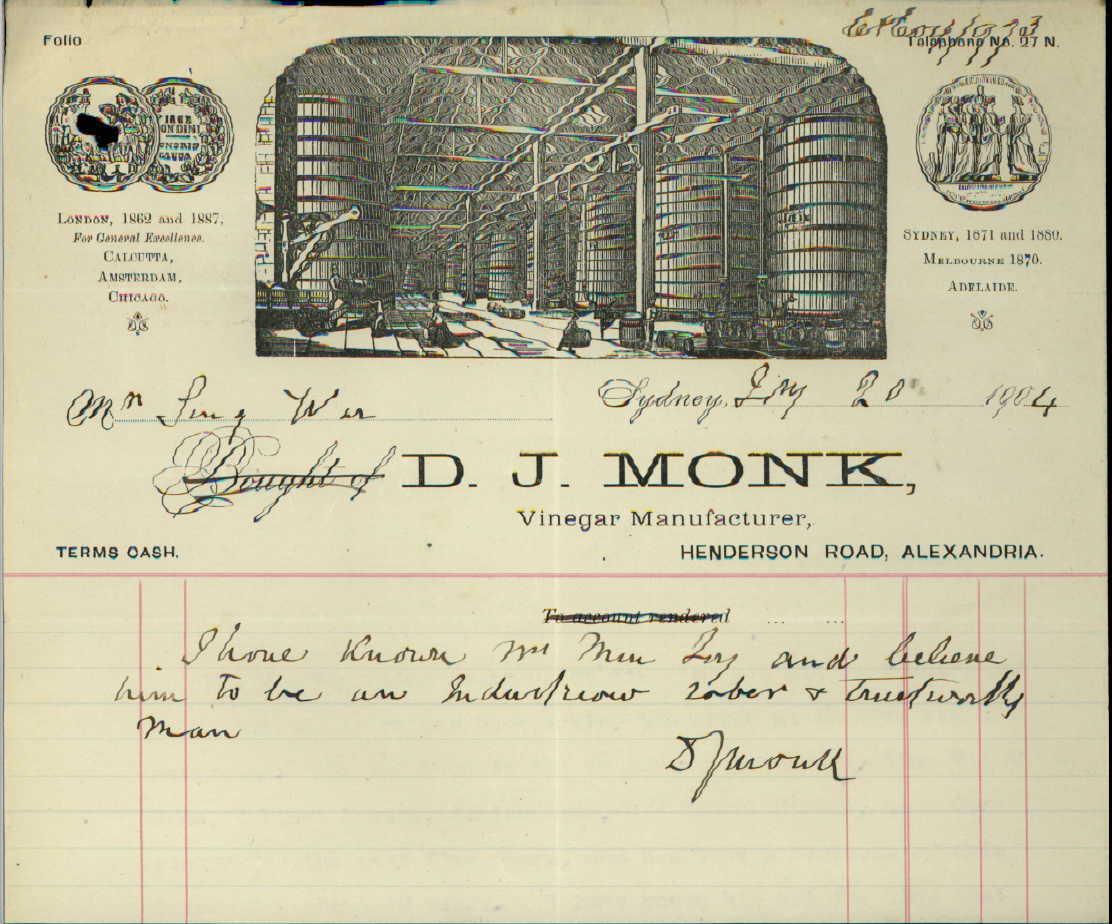 Folio
Telephone No. 27 N.
LONDON, 1862 and 1887,
For General Excellence.
CALCUTTA,
AMSTERDAM,
CHICAGO.
SYDNEY, 1871 and 1880.
MELBOURNE 1870.
ADELAIDE.
Mr
Sydney, 20 1904
Bought of D. J. MONK,
Vinegar Manufacturer,
TERMS CASH.
HENDERSON ROAD, ALEXANDRIA.
To account rendered ... ...
I have known Mr and believe
him to be an Industrious sober & trustworthy
man
D J Monk